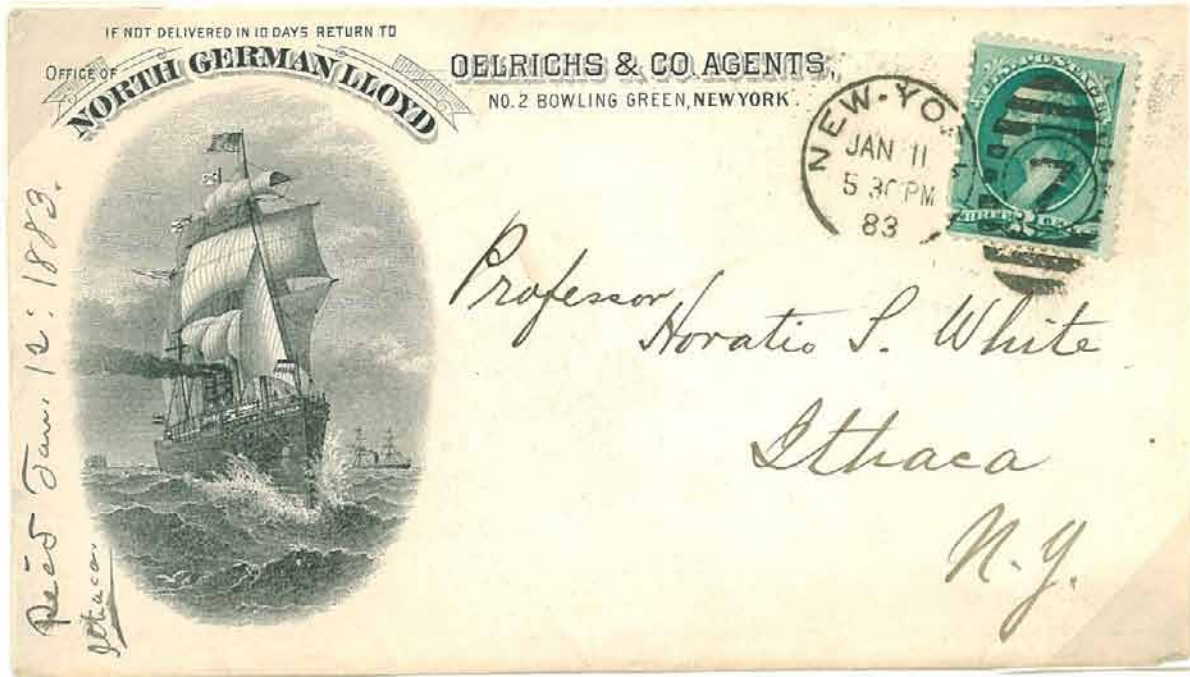 IF NOT DELIVERED IN 10 DAYS RETURN TO
OFFICE OF
NORTH GERMAN LLOYD
OELRICHS & CO. AGENTS,
NO. 2 BOWLING GREEN, NEW YORK.
NEW-YO
JAN 11
5 30 PM
83
7
U.S. POSTAGE
Professor
Horatio S. White
Ithaca
N.Y.
Rec'd Jan. 12: 1883.
Ithaca.